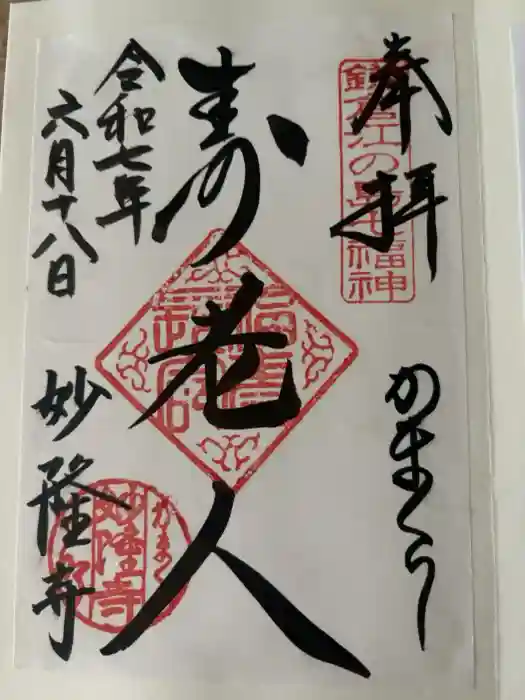 奉拝
かまくら
鎌倉江の島七福神
寿老人
令和七年
六月十八日
妙隆寺
かまくら
妙隆寺